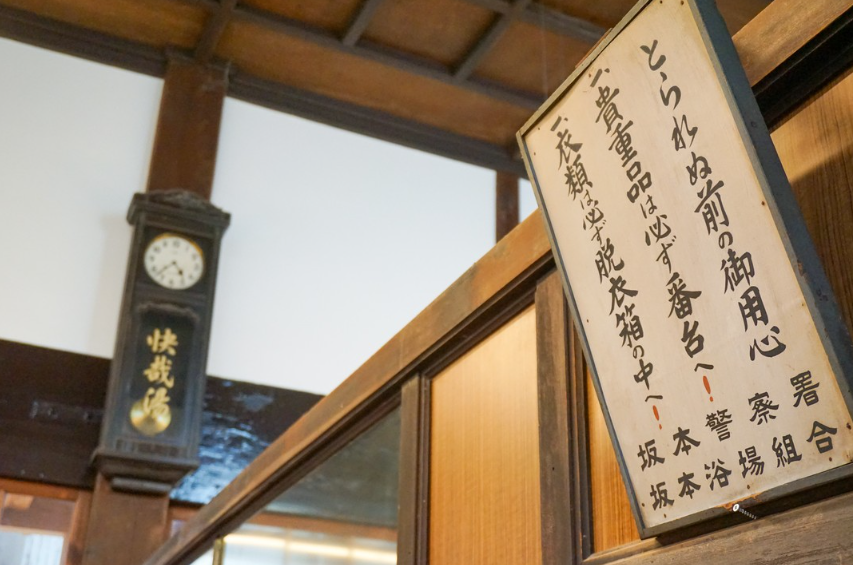 とられぬ前の御用心
一、貴重品は必ず番台へ！
一、衣類は必ず脱衣箱の中へ！
坂本警察署
坂本浴場組合
快哉湯